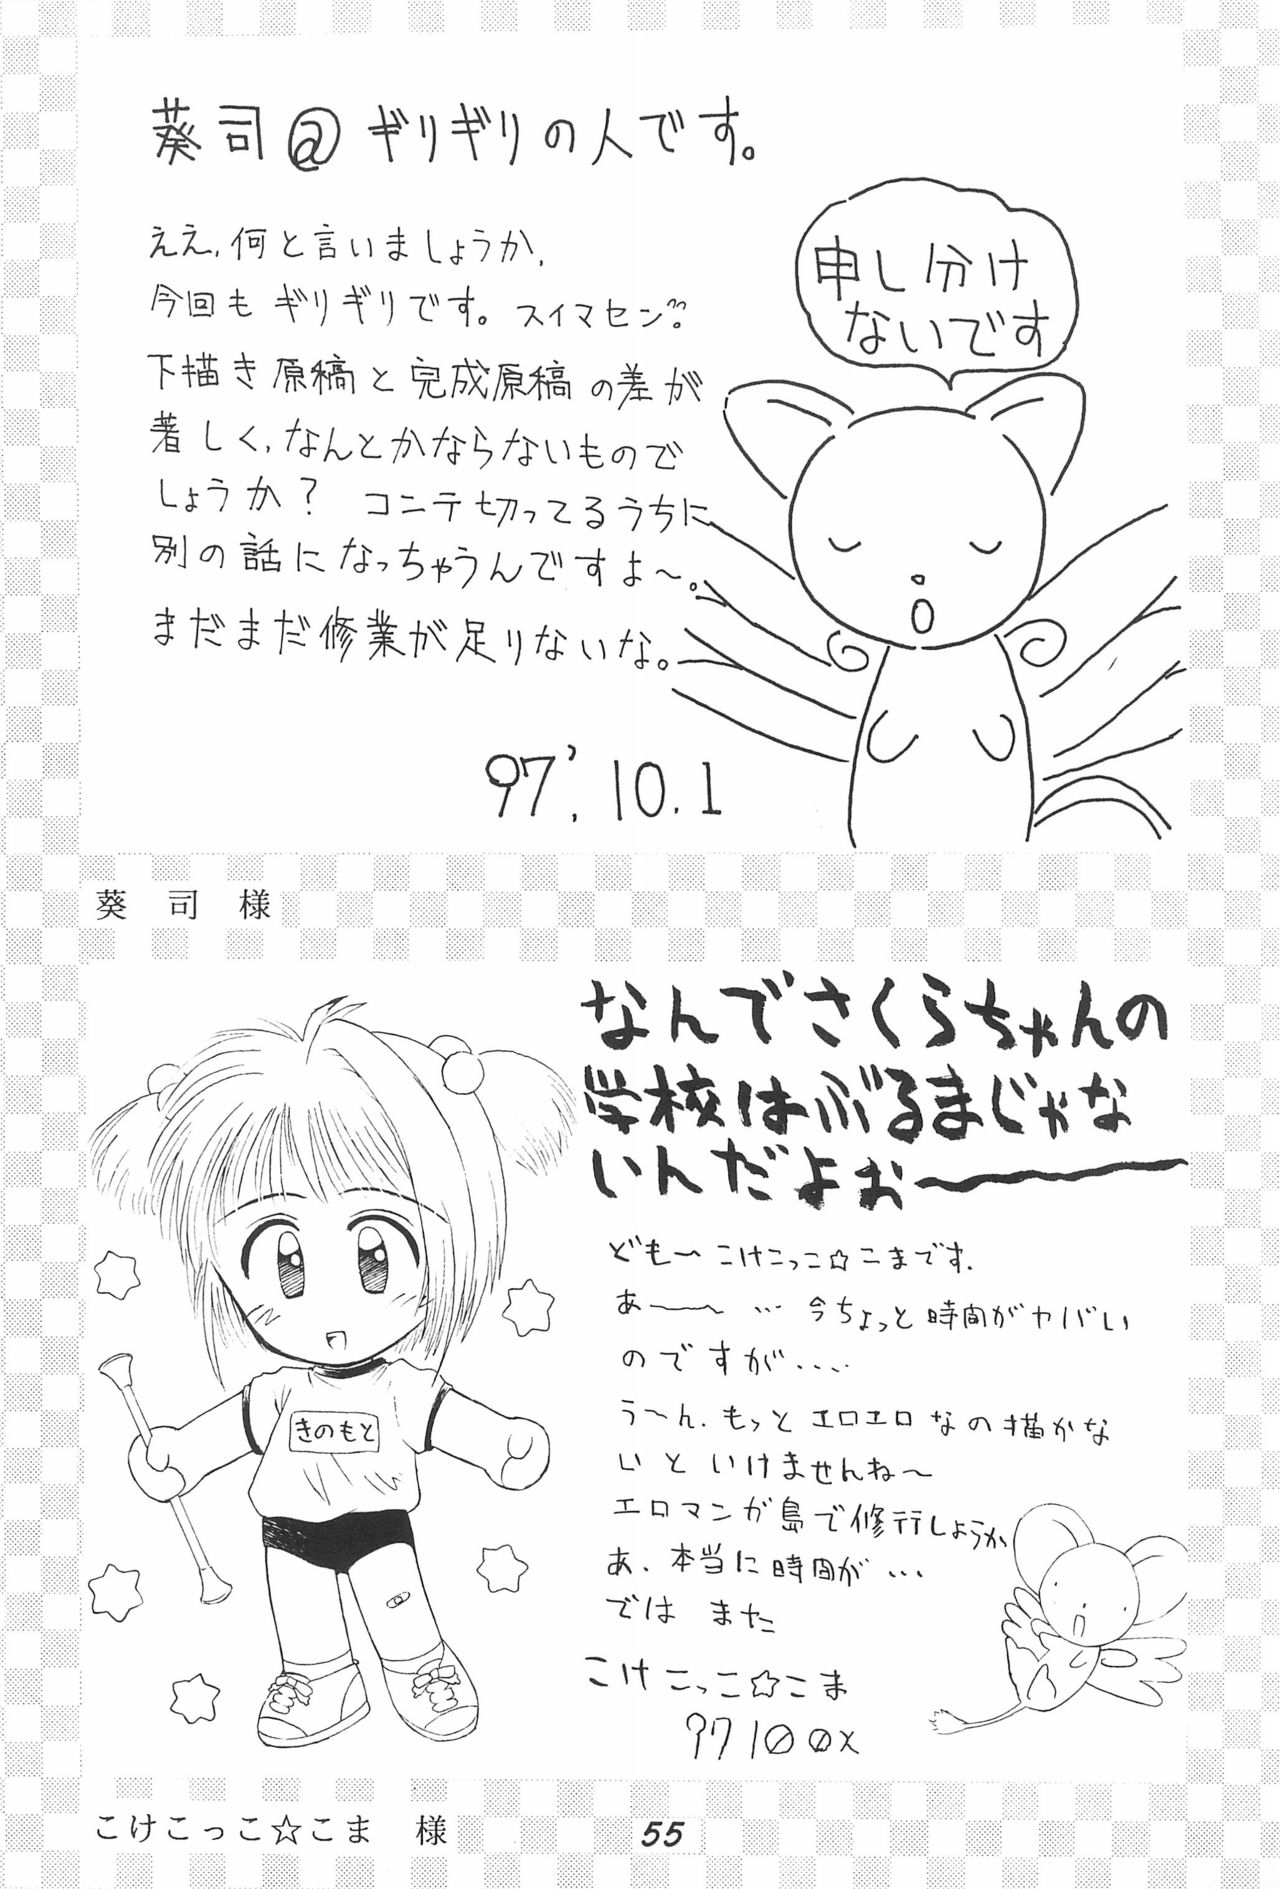 葵司@ギリギリの人です。
ええ、何と言いましょうか、
今回もギリギリです。スイマセン。
下描き原稿と完成原稿の差が
著しく、なんとかならないもので
しょうか? コンテ切ってるうちに
別の話になっちゃうんですよ〜。
まだまだ修業が足りないな。
97',10.1
申し分け
ないです
葵 司 様
なんでさくらちゃんの
学校はぶるまじゃな
いんだよぉ〜
どもー こけこっこ☆こまです.
あー〜 … 今ちょっと時間がヤバい
のですが....
う〜ん.もっとエロエロなの描かな
いといけませんね〜
エロマンガ島で修行しようか
あ、本当に時間が…
では また
こけこっこ☆こま
97 10 0x
きのもと
こけこっこ☆こま 様
55